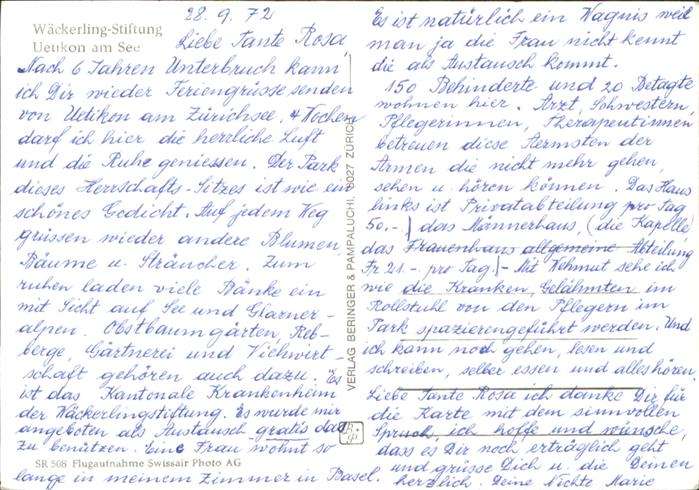 Wäckerling-Stiftung
Uetikon am See
28.9.72
Liebe Tante Rosa,
Nach 6 Jahren Unterbruch kann
ich Dir wieder Feriengrüsse senden
von Uetikon am Zürichsee. 4 Wochen
darf ich hier die herrliche Luft
und die Ruhe geniessen. Der Park
dieses Herrschafts-Sitzes ist wie ein
schönes Gedicht. Auf jedem Weg
grüssen wieder andere Blumen,
Bäume u. Sträucher. Zum
ruhen laden viele Bänke ein
mit Sicht auf See und Glarner-
alpen. Obstbaumgärten, Reb-
berge, Gärtnerei und Viehwirt-
schaft gehören auch dazu. Es
ist das Kantonale Krankenheim
der Wäckerlingstiftung. Es wurde mir
angeboten als Austausch gratis das
zu benützen. Eine Frau wohnt so
SR 508 Flugaufnahme Swissair Photo AG
lange in meinem Zimmer in Basel.
VERLAG BERINGER & PAMPALUCHI, 8027 ZÜRICH
Es ist natürlich ein Wagnis weil
man ja die Frau nicht kennt
die als Austausch kommt.
150 Behinderte und 20 Betagte
wohnen hier. Arzt, Schwestern,
Pflegerinnen, Therapeutinnen
betreuen diese Aermsten der
Armen die nicht mehr gehen,
sehen u. hören können. Das Haus
links ist Privatabteilung pro Tag
50.-) das Männerhaus, (die Kapelle
das Frauenhaus allgemeine Abteilung
Fr 21.- pro Tag.)- Mit Wehmut sehe ich
wie die Kranken, Gelähmten im
Rollstuhl von den Pflegern im
Park spazierengeführt werden. Und
ich kann noch gehen, lesen und
schreiben, selber essen und alles hören.
Liebe Tante Rosa ich danke Dir für
die Karte mit dem sinnvollen
Spruch, ich hoffe und wünsche,
dass es Dir noch erträglich geht
und grüsse Dich u. die Deinen
herzlich. Deine Nichte Marie